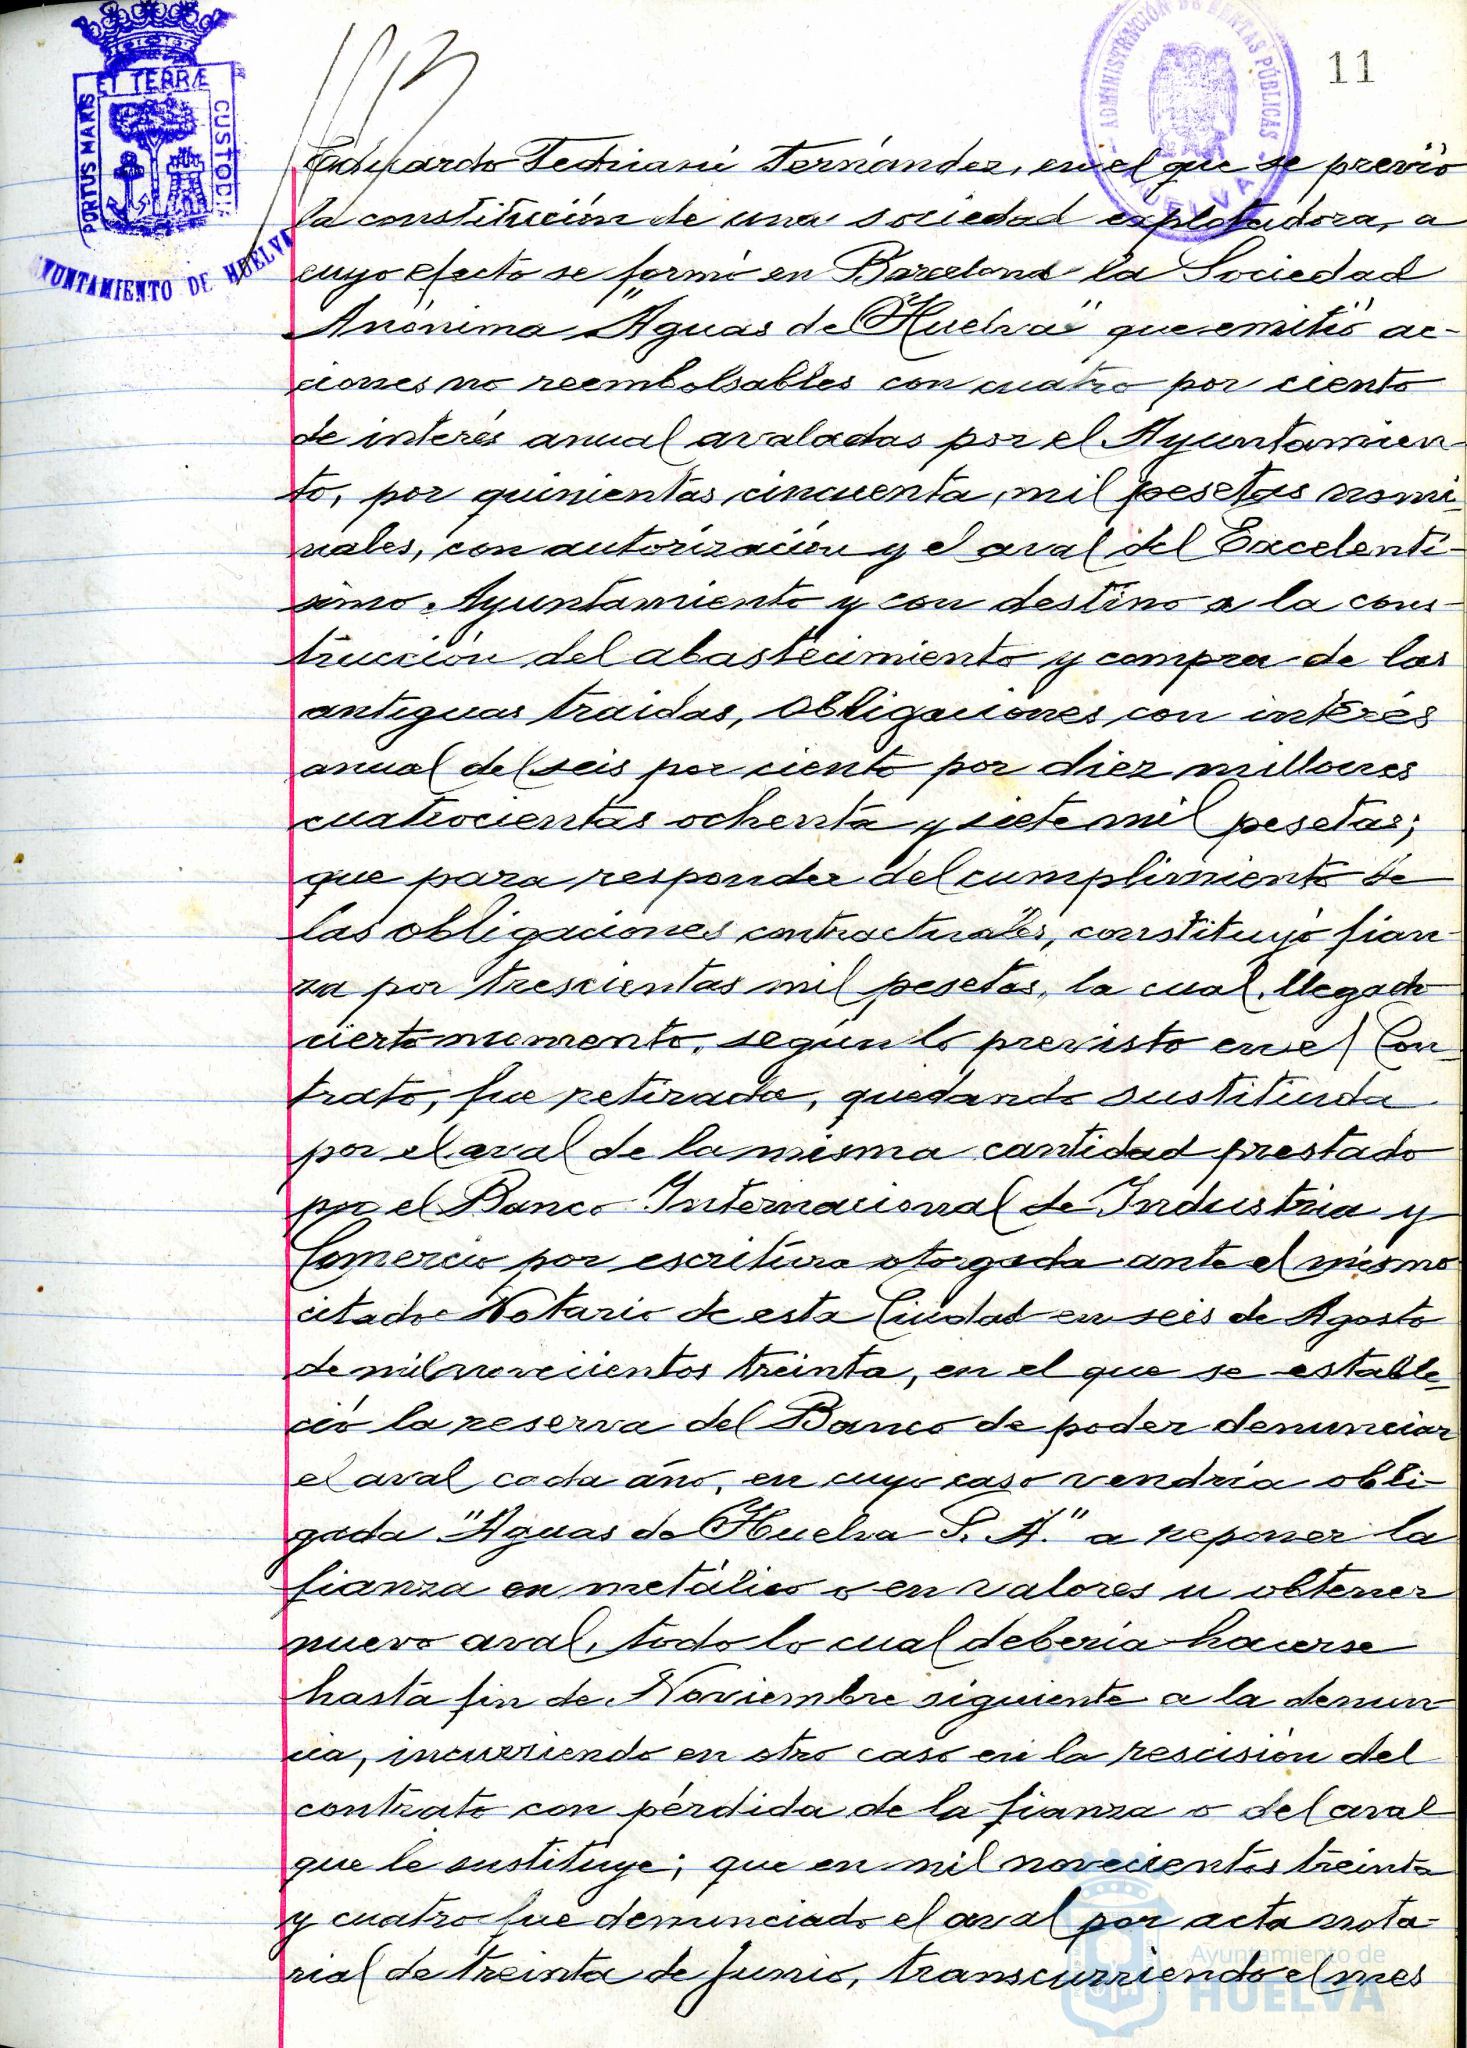 11
ADMINISTRACIÓN DE RENTAS PÚBLICAS
HUELVA
PORTUS MARIS ET TERRÆ CUSTODIA
AYUNTAMIENTO DE HUELVA
Eduardo Fernández, en el que se previó
la constitución de una sociedad explotadora, a
cuyo efecto se formó en Barcelona la Sociedad
Anónima "Aguas de Huelva" que emitió ac-
ciones no reembolsables con cuatro por ciento
de interés anual avaladas por el Ayuntamien-
to, por quinientas cincuenta mil pesetas nomi-
nales, con autorización y el aval del Excelentí-
simo. Ayuntamiento y con destino a la cons-
trucción del abastecimiento y compra de las
antiguas traidas, obligaciones con interés
anual del seis por ciento por diez millones
cuatrocientas ochenta y siete mil pesetas;
que para responder del cumplimiento de
las obligaciones contractuales, constituyó fian-
za por trescientas mil pesetas, la cual, llegado
cierto momento, según lo previsto en el Con-
trato, fue retirada, quedando sustituida
por el aval de la misma cantidad prestado
por el Banco Internacional de Industria y
Comercio por escritura otorgada ante el mismo
citado Notario de esta Ciudad en seis de Agosto
de mil novecientos treinta, en el que se estable-
ció la reserva del Banco de poder denunciar
el aval cada año, en cuyo caso vendría obli-
gada "Aguas de Huelva S. A." a reponer la
fianza en metálico o en valores u obtener
nuevo aval, todo lo cual debería hacerse
hasta fin de Noviembre siguiente a la denun-
cia, incurriendo en otro caso en la rescisión del
contrato con pérdida de la fianza o del aval
que le sustituye; que en mil novecientos treinta
y cuatro fue denunciado el aval por acta nota-
rial de treinta de Junio, transcurriendo el mes
Ayuntamiento de
HUELVA